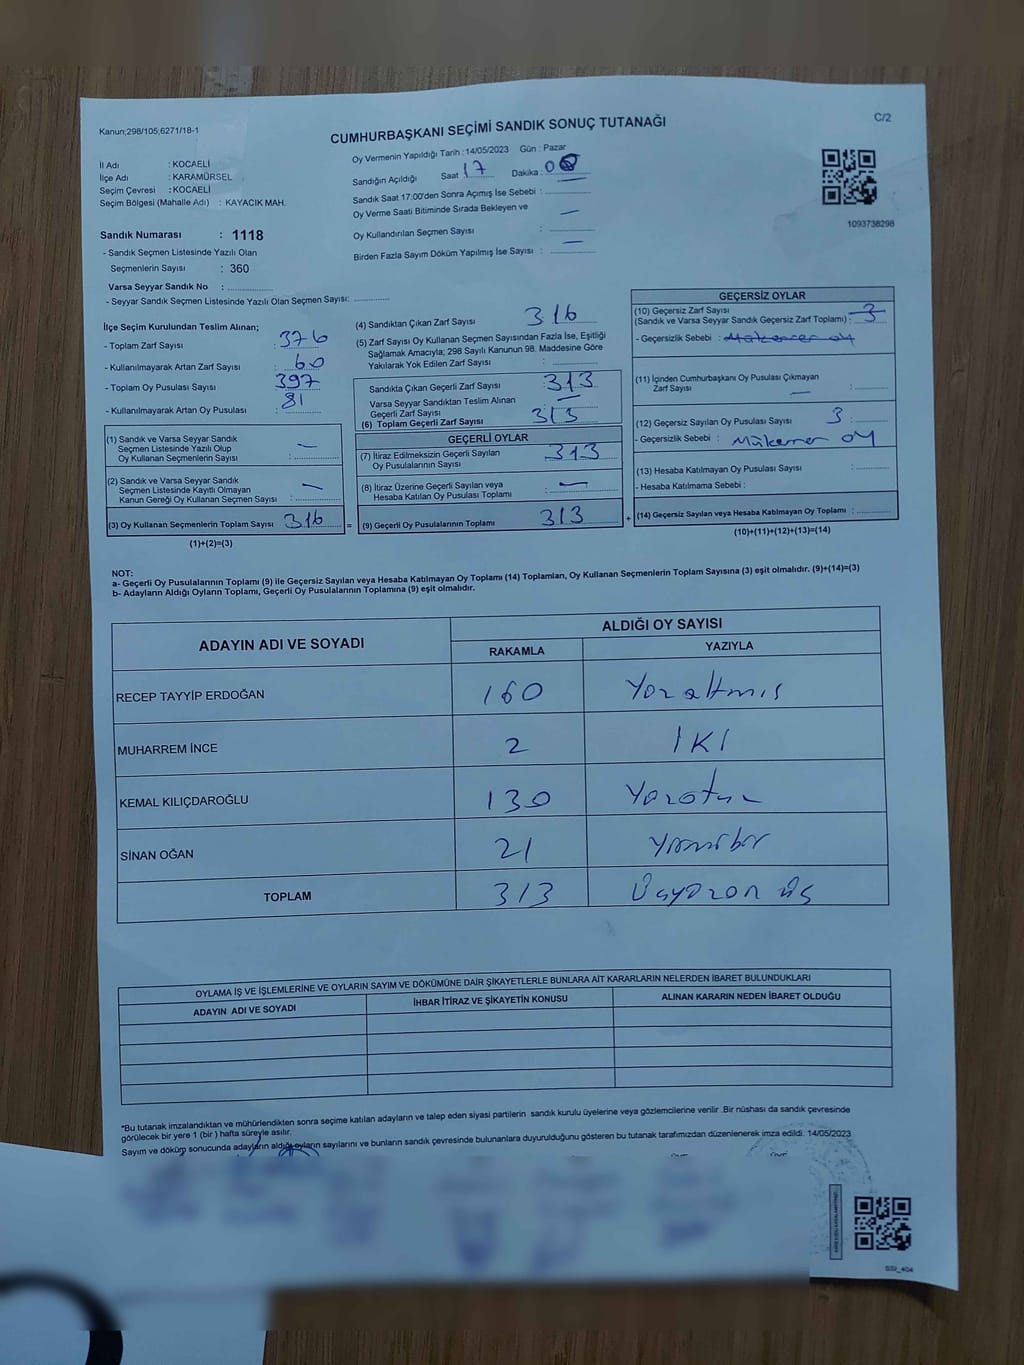 Kanun;298/105,6271/18-1
C/2
CUMHURBAŞKANI SEÇİMİ SANDIK SONUÇ TUTANAĞI
İl Adı : KOCAELİ
İlçe Adı : KARAMÜRSEL
Seçim Çevresi : KOCAELİ
Seçim Bölgesi (Mahalle Adı) : KAYACIK MAH.
Oy Vermenin Yapıldığı Tarih : 14/05/2023 Gün : Pazar
Sandığın Açıldığı Saat 17 Dakika : 00
Sandık Saat 17:00'den Sonra Açımış İse Sebebi :
Oy Verme Saati Bitiminde Sırada Bekleyen ve
Oy Kullandırılan Seçmen Sayısı : —
Birden Fazla Sayım Döküm Yapılmış İse Sayısı : —
1093738298
Sandık Numarası : 1118
- Sandık Seçmen Listesinde Yazılı Olan
Seçmenlerin Sayısı : 360
Varsa Seyyar Sandık No :
- Seyyar Sandık Seçmen Listesinde Yazılı Olan Seçmen Sayısı:
İlçe Seçim Kurulundan Teslim Alınan;
- Toplam Zarf Sayısı : 376
- Kullanılmayarak Artan Zarf Sayısı : 60
- Toplam Oy Pusulası Sayısı : 397
- Kullanılmayarak Artan Oy Pusulası : 81
(1) Sandık ve Varsa Seyyar Sandık
Seçmen Listesinde Yazılı Olup
Oy Kullanan Seçmenlerin Sayısı : —
(2) Sandık ve Varsa Seyyar Sandık
Seçmen Listesinde Kayıtlı Olmayan
Kanun Gereği Oy Kullanan Seçmen Sayısı : —
(3) Oy Kullanan Seçmenlerin Toplam Sayısı 316 =
(1)+(2)=(3)
(4) Sandıktan Çıkan Zarf Sayısı : 316
(5) Zarf Sayısı Oy Kullanan Seçmen Sayısından Fazla İse, Eşitliği
Sağlamak Amacıyla; 298 Sayılı Kanunun 98. Maddesine Göre
Yakılarak Yok Edilen Zarf Sayısı :
Sandıkta Çıkan Geçerli Zarf Sayısı : 313
Varsa Seyyar Sandıktan Teslim Alınan
Geçerli Zarf Sayısı : —
(6) Toplam Geçerli Zarf Sayısı : 313
GEÇERLİ OYLAR
(7) İtiraz Edilmeksizin Geçerli Sayılan
Oy Pusulalarının Sayısı : 313
(8) İtiraz Üzerine Geçerli Sayılan veya
Hesaba Katılan Oy Pusulası Toplamı : —
(9) Geçerli Oy Pusulalarının Toplamı 313 +
GEÇERSİZ OYLAR
(10) Geçersiz Zarf Sayısı
(Sandık ve Varsa Seyyar Sandık Geçersiz Zarf Toplamı) : 3
- Geçersizlik Sebebi : Mükerrer oy
(11) İçinden Cumhurbaşkanı Oy Pusulası Çıkmayan
Zarf Sayısı : —
(12) Geçersiz Sayılan Oy Pusulası Sayısı : 3
- Geçersizlik Sebebi : Mükerrer oy
(13) Hesaba Katılmayan Oy Pusulası Sayısı :
- Hesaba Katılmama Sebebi :
(14) Geçersiz Sayılan veya Hesaba Katılmayan Oy Toplamı :
(10)+(11)+(12)+(13)=(14)
NOT:
a- Geçerli Oy Pusulalarının Toplamı (9) ile Geçersiz Sayılan veya Hesaba Katılmayan Oy Toplamı (14) Toplamları, Oy Kullanan Seçmenlerin Toplam Sayısına (3) eşit olmalıdır. (9)+(14)=(3)
b- Adayların Aldığı Oyların Toplamı, Geçerli Oy Pusulalarının Toplamına (9) eşit olmalıdır.
ADAYIN ADI VE SOYADI ALDIĞI OY SAYISI
RAKAMLA YAZIYLA
RECEP TAYYİP ERDOĞAN 160 Yüzaltmış
MUHARREM İNCE 2 İKİ
KEMAL KILIÇDAROĞLU 130 Yüzotuz
SİNAN OĞAN 21 Yirmibir
TOPLAM 313 Üçyüzon üç
OYLAMA İŞ VE İŞLEMLERİNE VE OYLARIN SAYIM VE DÖKÜMÜNE DAİR ŞİKAYETLERLE BUNLARA AİT KARARLARIN NELERDEN İBARET BULUNDUKLARI
ADAYIN ADI VE SOYADI İHBAR İTİRAZ VE ŞİKAYETİN KONUSU ALINAN KARARIN NEDEN İBARET OLDUĞU
*Bu tutanak imzalandıktan ve mühürlendikten sonra seçime katılan adayların ve talep eden siyasi partilerin sandık kurulu üyelerine veya gözlemcilerine verilir .Bir nüshası da sandık çevresinde
görülecek bir yere 1 (bir ) hafta süreyle asılır.
Sayım ve döküm sonucunda adayların aldığı oyların sayılarını ve bunların sandık çevresinde bulunanlara duyurulduğunu gösteren bu tutanak tarafımızdan düzenlenerek imza edildi. 14/05/2023
SSI_404